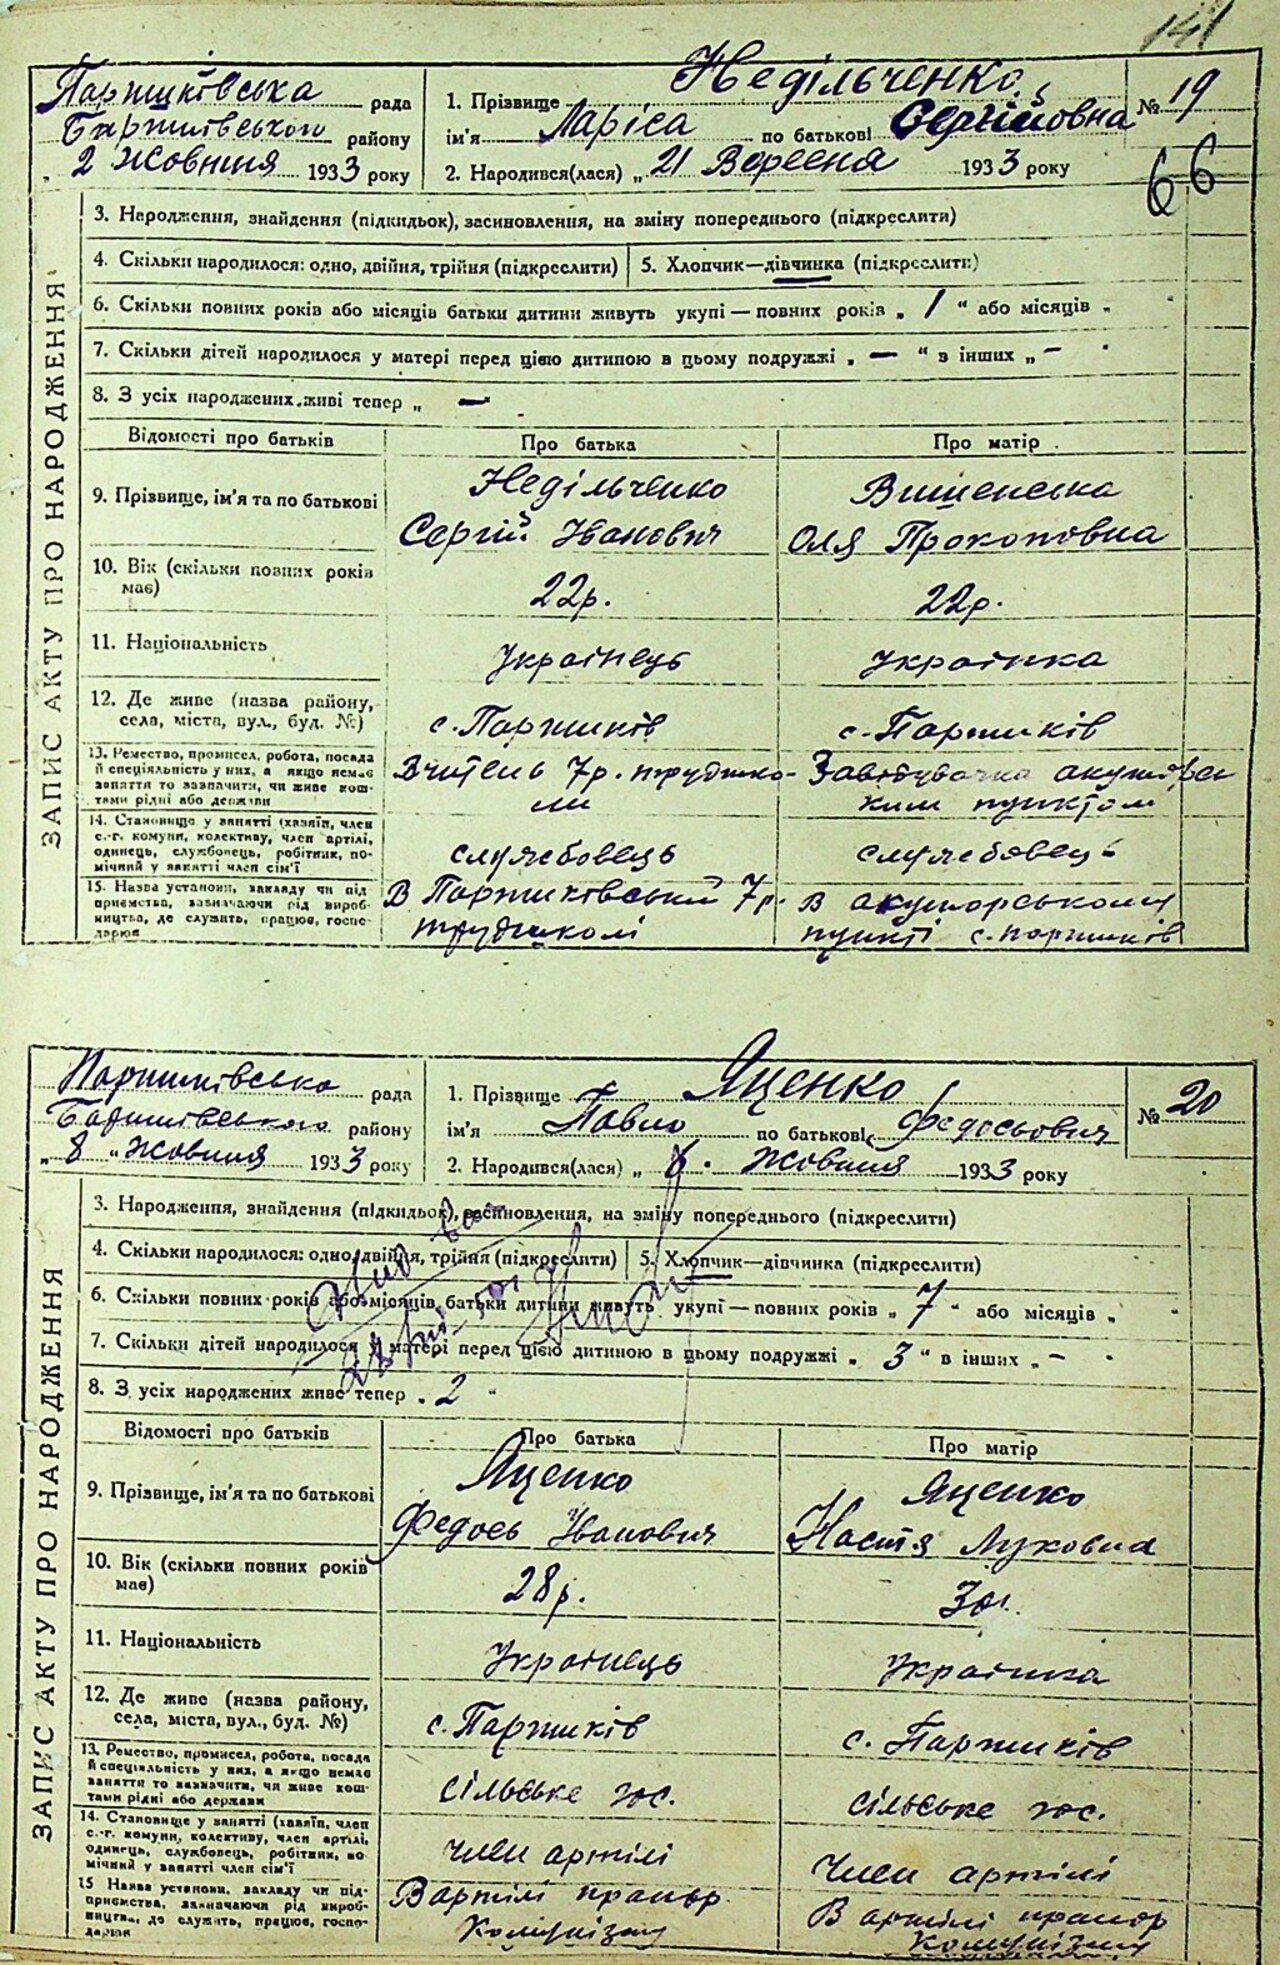 141
Паришківська рада
Баришівського району
„ 2 Жовтня 1933 року
1. Прізвище Недільченко
ім'я Ларіса по батькові Сергіївна
2. Народився(лася) „ 21 Вересня 1933 року
№ 19
66
ЗАПИС АКТУ ПРО НАРОДЖЕННЯ
3. Народження, знайдення (підкидьок), засиновлення, на зміну попереднього (підкреслити)
4. Скільки народилося: одно, двійня, трійня (підкреслити) 5. Хлопчик—дівчинка (підкреслити)
6. Скільки повних років або місяців батьки дитини живуть укупі — повних років „ 1 “ або місяців „ “
7. Скільки дітей народилося у матері перед цією дитиною в цьому подружжі „ — “ в інших „ — “
8. З усіх народжених живі тепер „ —
Відомості про батьків Про батька Про матір
9. Прізвище, ім'я та по батькові
Недільченко
Сергій Іванович
Вишенська
Оля Прокоповна
10. Вік (скільки повних років
має)
22р.
22р.
11. Національність
Українець
Українка
12. Де живе (назва району,
села, міста, вул., буд. №)
с. Паришків
с. Паришків
13. Ремество, промисел, робота, посада
й спеціяльність у них, а якщо немає
заняття то зазначити, чи живе кош-
тами рідні або держави
Вчитель 7р. трудшко-
ли
Завідувачка акушорсь
ким пунктом
14. Становище у занятті (хазяїн, член
с.-г. комуни, колективу, член артілі,
одинець, службовець, робітник, по-
мічний у занятті член сім'ї
службовець
службовець
15. Назва установи, закладу чи під
приємства, зазначаючи рід вироб-
ництва, де служить, працює, госпо-
дарює
В Паришківській 7р.
трудшколі
В акушорському
пункті с. Паришків
Паришківська рада
Баришівського району
„ 8 “ Жовтня 1933 року
1. Прізвище Яценко
ім'я Павло по батькові Федосьович
2. Народився(лася) „ 6. Жовтня 1933 року
№ 20
ЗАПИС АКТУ ПРО НАРОДЖЕННЯ
3. Народження, знайдення (підкидьок), засиновлення, на зміну попереднього (підкреслити)
4. Скільки народилося: одно, двійня, трійня (підкреслити) 5. Хлопчик—дівчинка (підкреслити)
6. Скільки повних років або місяців батьки дитини живуть укупі — повних років „ 7 “ або місяців „
7. Скільки дітей народилося у матері перед цією дитиною в цьому подружжі „ 3 “ в інших „ — “
8. З усіх народжених живе тепер „ 2 “
Відомості про батьків Про батька Про матір
9. Прізвище, ім'я та по батькові
Яценко
Федось Іванович
Яценко
Настя Луковна
10. Вік (скільки повних років
має)
28р.
30р.
11. Національність
Українець
Українка
12. Де живе (назва району,
села, міста, вул., буд. №)
с. Паришків
с. Паришків
13. Ремество, промисел, робота, посада
й спеціяльність у них, а якщо немає
заняття то зазначити, чи живе кош-
тами рідні або держави
Сільське гос.
Сільське гос.
14. Становище у занятті (хазяїн, член
с.-г. комуни, колективу, член артілі,
одинець, службовець, робітник, по
мічний у занятті член сім'ї
Член артілі
Член артілі
15 Назва установи, закладу чи під-
приємства, зазначаючи рід вироб-
ництва, де служить, працює, госпо-
дарює
В артілі прапор
Комунізму
В артілі прапор
Комунізму